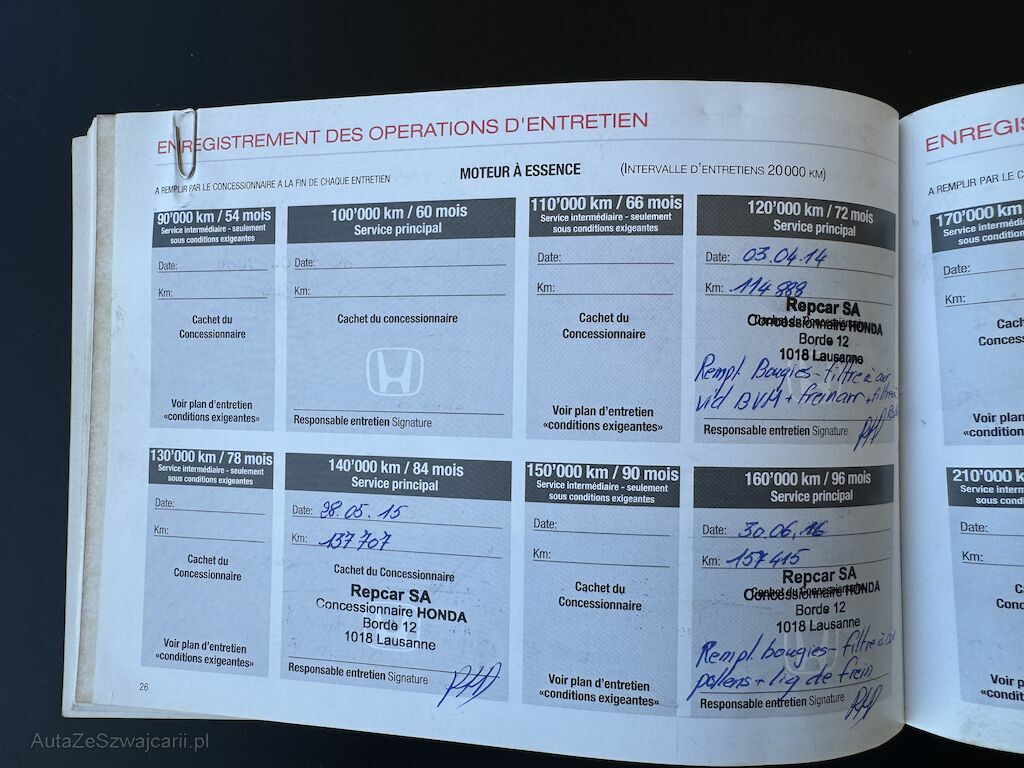 ENREGISTREMENT DES OPERATIONS D'ENTRETIEN
A REMPLIR PAR LE CONCESSIONNAIRE A LA FIN DE CHAQUE ENTRETIEN
MOTEUR À ESSENCE
(INTERVALLE D'ENTRETIENS 20 000 KM)
90'000 km / 54 mois
Service intermédiaire - seulement
sous conditions exigeantes
Date:
Km:
Cachet du
Concessionnaire
Voir plan d'entretien
«conditions exigeantes»
100'000 km / 60 mois
Service principal
Date:
Km:
Cachet du concessionnaire
Responsable entretien Signature
110'000 km / 66 mois
Service intermédiaire - seulement
sous conditions exigeantes
Date:
Km:
Cachet du
Concessionnaire
Voir plan d'entretien
«conditions exigeantes»
120'000 km / 72 mois
Service principal
Date: 03.04.14
Km: 114 888
Cachet du Concessionnaire
Repcar SA
Concessionnaire HONDA
Borde 12
1018 Lausanne
Rempl. Bougies - filtre à air
vid BVM + frein arr + filtre à
Responsable entretien Signature
130'000 km / 78 mois
Service intermédiaire - seulement
sous conditions exigeantes
Date:
Km:
Cachet du
Concessionnaire
Voir plan d'entretien
«conditions exigeantes»
140'000 km / 84 mois
Service principal
Date: 28.05.15
Km: 137 707
Cachet du Concessionnaire
Repcar SA
Concessionnaire HONDA
Borde 12
1018 Lausanne
Responsable entretien Signature
150'000 km / 90 mois
Service intermédiaire - seulement
sous conditions exigeantes
Date:
Km:
Cachet du
Concessionnaire
Voir plan d'entretien
«conditions exigeantes»
160'000 km / 96 mois
Service principal
Date: 30.06.16
Km: 157 415
Cachet du Concessionnaire
Repcar SA
Concessionnaire HONDA
Borde 12
1018 Lausanne
Rempl. bougies - filtre à air
pollens + liq de frein
Responsable entretien Signature
26
ENREGIS
A REMPLIR PAR LE C
170'000 km
Service interm
sous conditi
Date:
Km:
Cach
Concess
Voir plan
«conditions
210'000 k
Service interm
sous condit
Date:
Km:
C
Conc
Voir pla
«condit
AutaZeSzwajcarii.pl